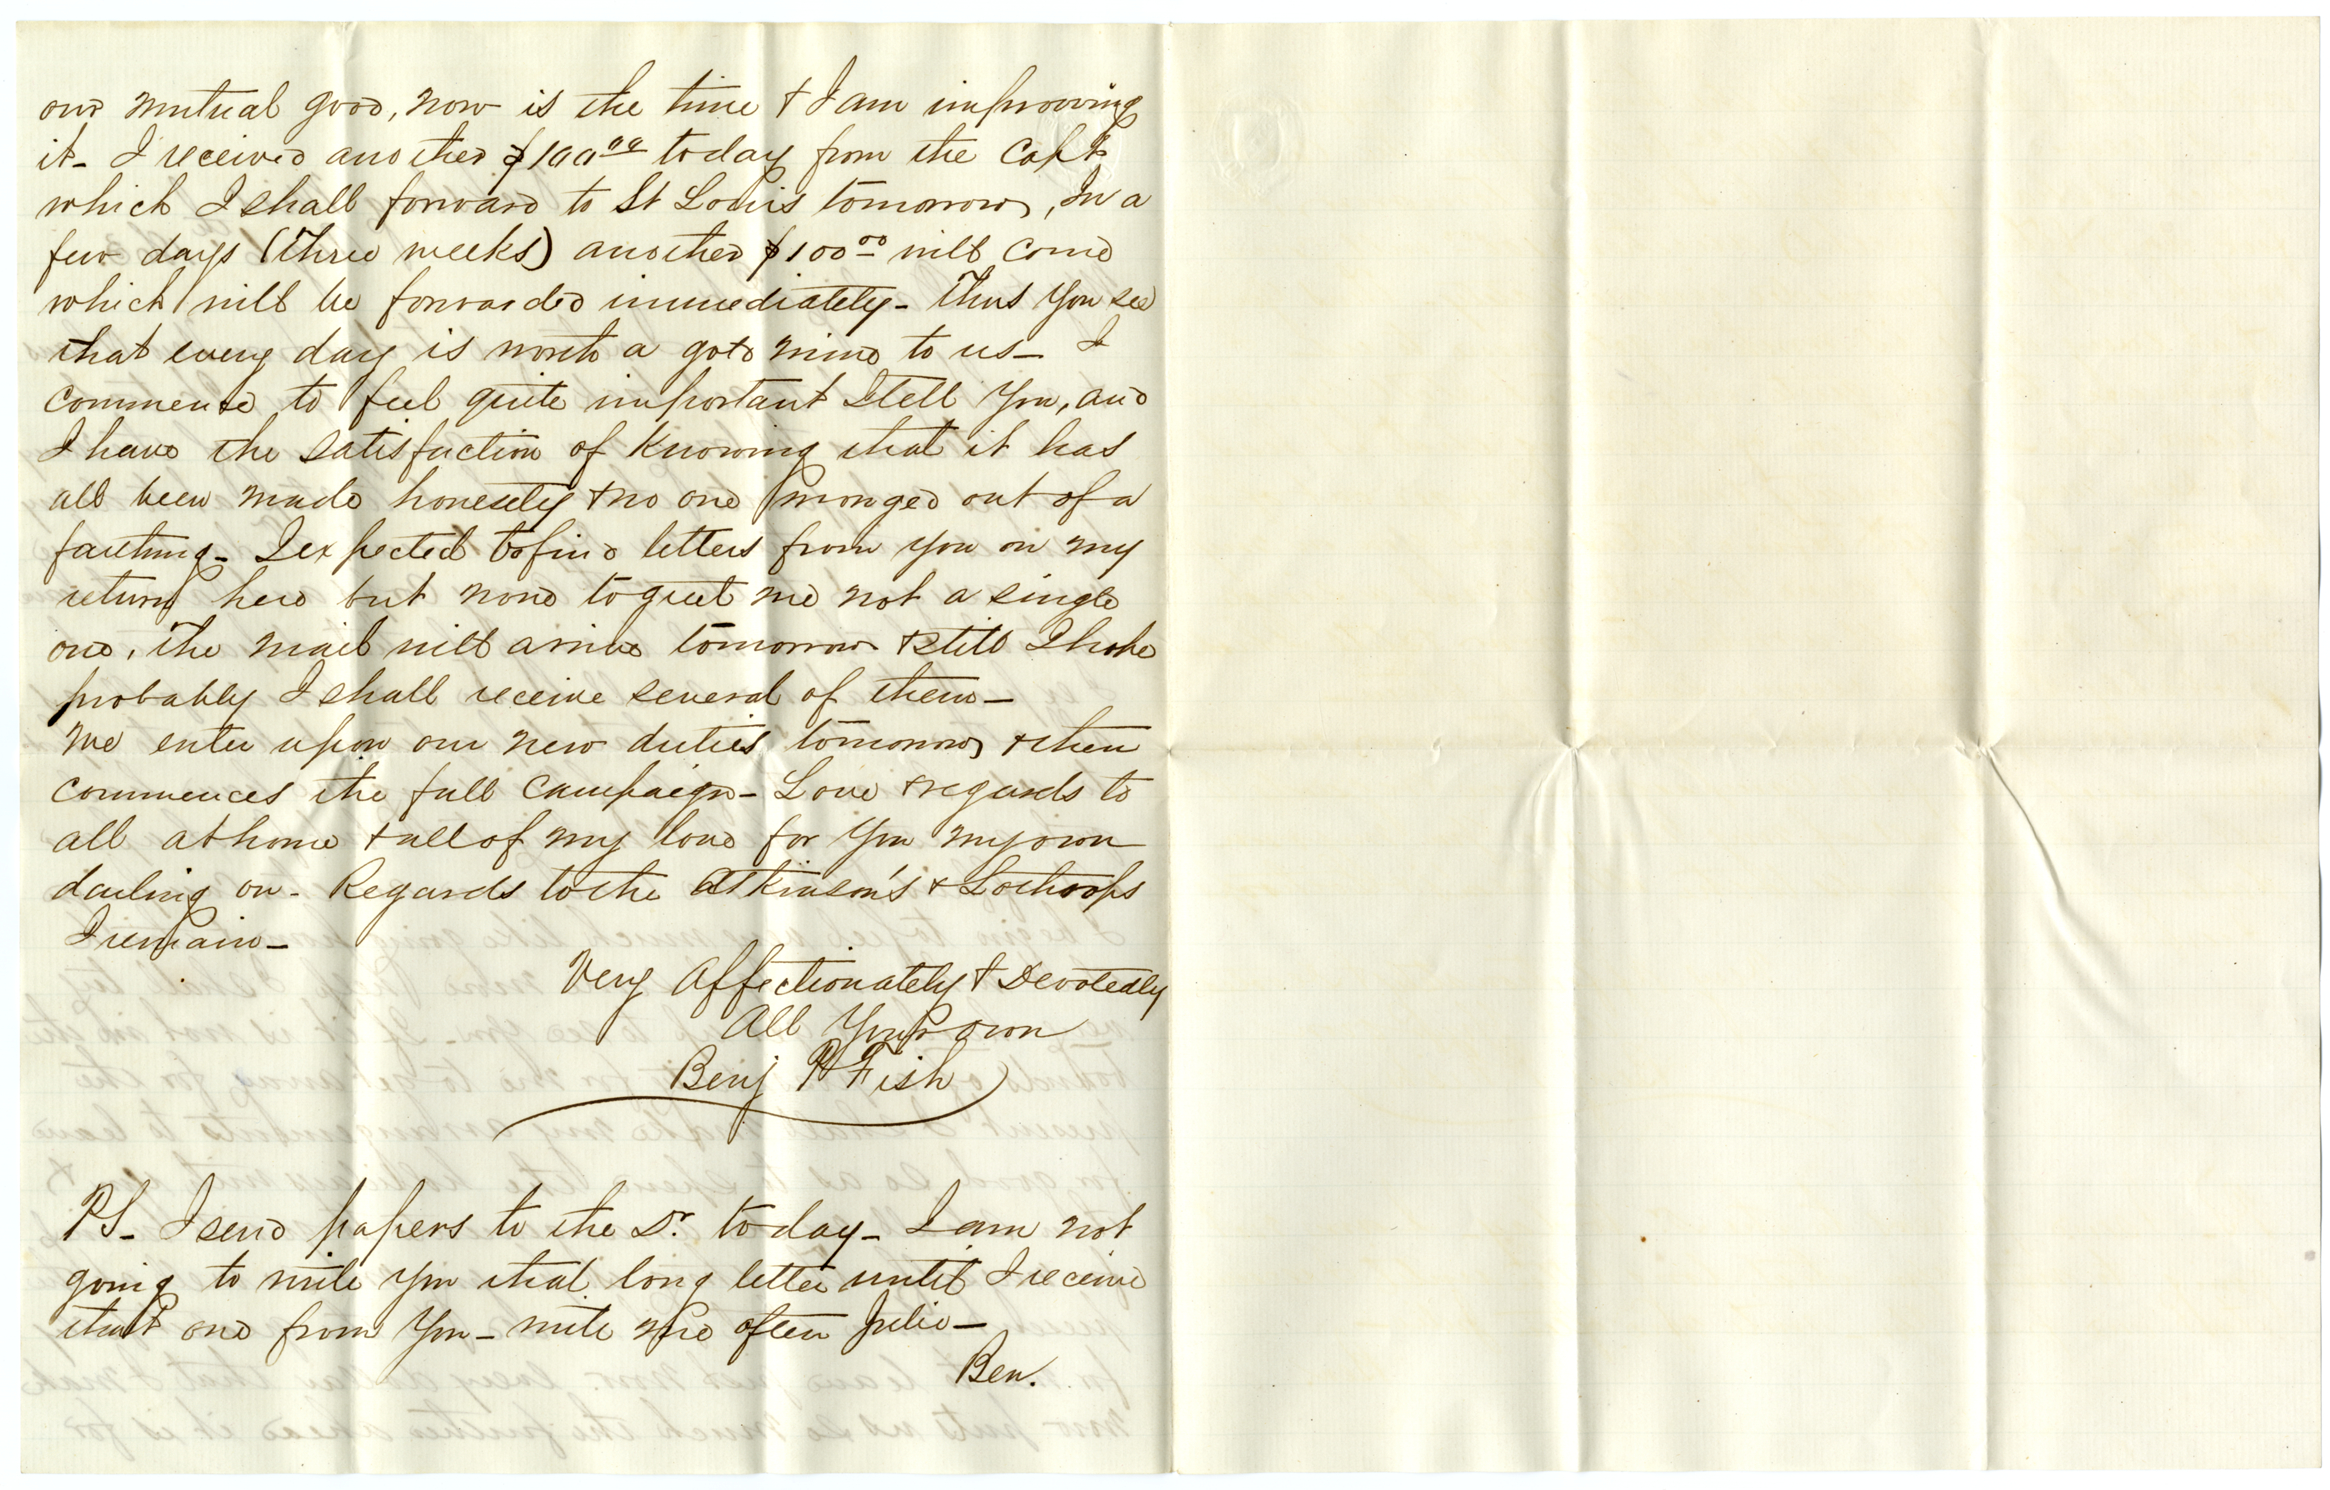 our mutual good, now is the time & I am improoving
it - I received another $100.00 today from the Capt
which I shall forward to St Louis tomorrow, In a
few days (three weeks) another $100.00 will come
which will be forwarded immediately - Thus You see
that every day is worth a gold mine to us - I
commence to feel quite important I tell You, and
I have the satisfaction of Knowing that it has
all been made honestly & no one wronged out of a
farthing - I expected to find letters from you on my
return here but none to greet me not a single
one, The mail will arrive tomorrow & still I hope
probably I shall receive several of them -
We enter upon our new duties tomorrow & then
commences the fall Campaign - Love & regards to
all at home & all of my love for You my own
darling on - Regards to the Atkinson's & Lothrops
I remain -
Very Affectionately & Devotedly
All Your own
Benj P Fish
PS - I send papers to the Dr. today - I am not
going to write You that long letter until I receive
that one from You - write me often Julie -
Ben.